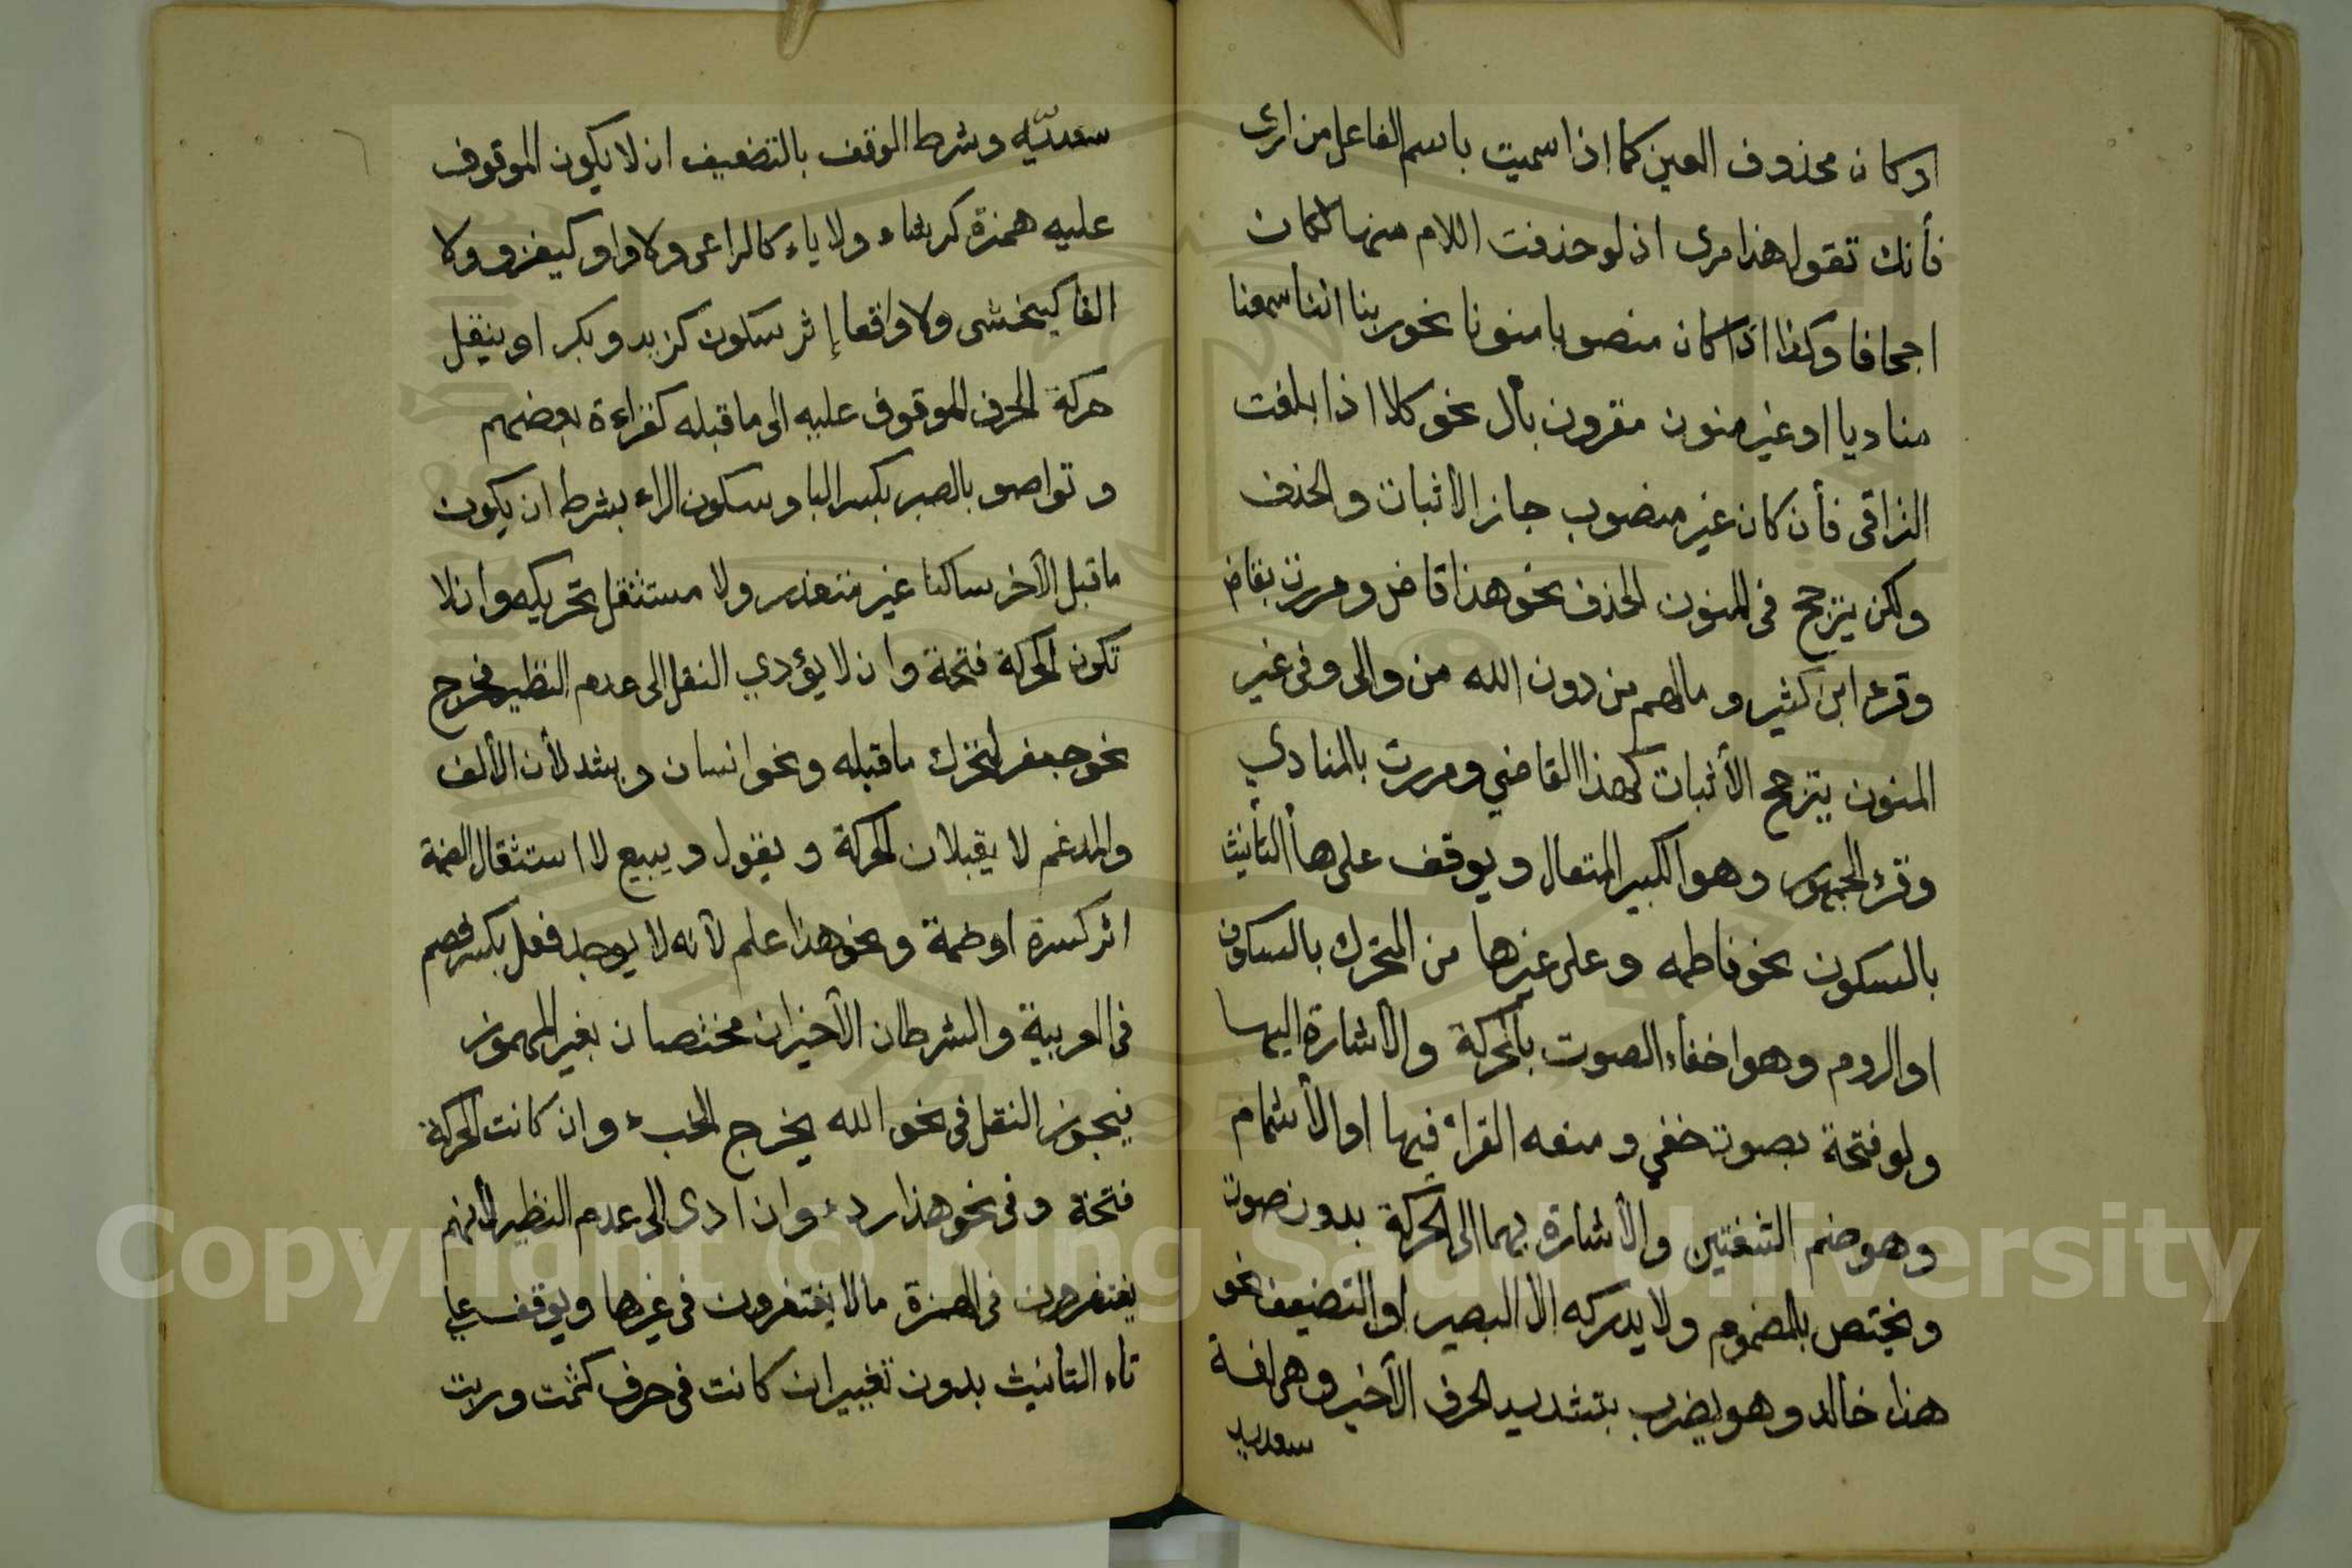 او كان محذوف العين كما اذا سميت باسم الفاعل من ارى
فأنك تقول هذا مرى اذ لو حذفت اللام منها لكان
اجحافا وكذا اذا كان منصوبا منونا نحو ربنا اننا سمعنا
مناديا او غير منون مقرون بأل نحو كلا اذا بلغت
التراقى فأن كان غير منصوب جاز الاثبات والحذف
ولكن يترجح فى المنون الحذف نحو هذا قاض ومررت بقاض
وقرء ابن كثير ومالهم من دون الله من والى وفى غير
المنون يترجح الأثبات كهذا القاضي ومررت بالمنادي
وقرء الجمهور وهو الكبير المتعال ويوقف على هاأ التأنيث
بالسكون نحو فاطمه وعلى غيرها من المتحرك بالسكون
او الروم وهو اخفاء الصوت بالحركة والأشارة اليها
ولو فتحة بصوت خفي ومنعه القراء فيها او الأشمام
وهو ضم الشفتين والأشارة بهما الى الحركة بدون صوت
ويختص بالمضموم ولا يدركه الا البصير او التضعيف نحو
هذا خالد وهو يضرب بتشديد الحرف الأخير وهى لغة
سعديه
سعديّه وشرط الوقف بالتضعيف ان لا يكون الموقوف
عليه همزة كرشاء ولا ياء كالراعى ولا واو كيغزو ولا
الفا كيخشى ولا واقعا إثر سكون كزيد وبكر او بنقل
حركة الحرف الموقوف عليه الى ما قبله كقراءة بعضهم
وتواصو بالصبر بكسر البا وسكون الراء بشرط ان يكون
ما قبل الآخر ساكنا غير متعذر ولا مستثقل تحريكه وان لا
تكون الحركة فتحة وان لا يؤدي النقل الى عدم النظير فخرج
نحو جعفر لتحرك ما قبله ونحو انسان ويشد لأن الألف
والمدغم لا يقبلان الحركة ويقول ويبيع لا استثقال الضمة
اثر كسرة او ضمة ونحو هذا علم لأنه لا يوجد فعل بكسر فضم
فى العربية والشرطان الأخيران مختصان بغير المهموز
فيجوز النقل فى نحو الله يخرج الخبء وان كانت الحركة
فتحة وفى نحو هذا ردء وان ادى الى عدم النظير لأنهم
يغتفرون فى الهمزة ما لا يغتفرون فى غيرها ويوقف على
تاء التانيث بدون تغيير ان كانت فى حرف كثمت وربت
Copyright © King Saud University